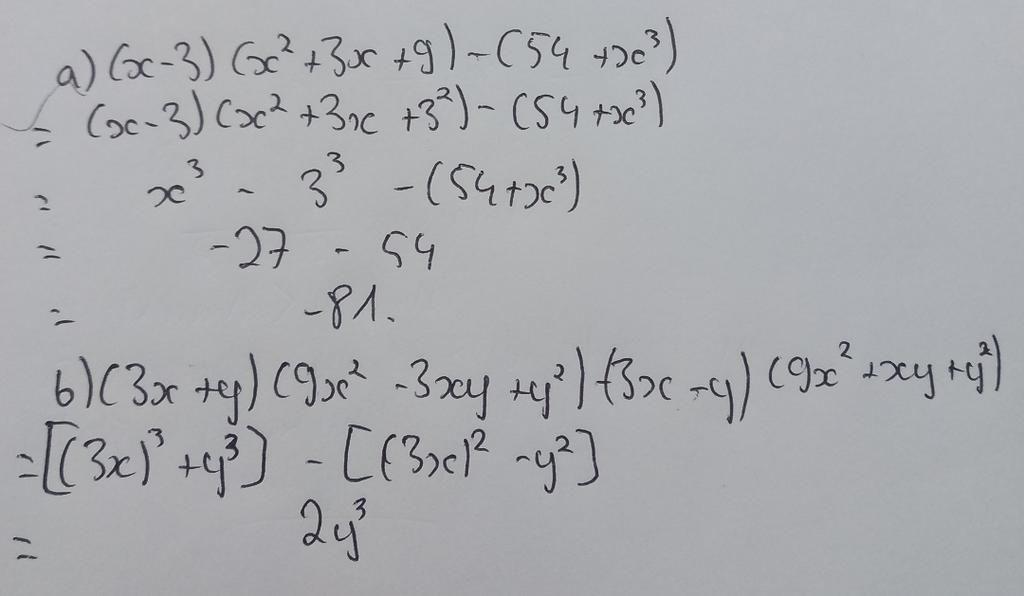 a) (x-3) (x² +3x +9) - (54 +x³)
= (x-3) (x² +3x +3²) - (54+x³)
= x³ - 3³ - (54+x³)
= -27 - 54
= -81.
b) (3x +y) (9x² -3xy +y²) -(3x -y) (9x² +xy +y²)
= [(3x)³ +y³] - [(3x)² -y²]
= 2y³